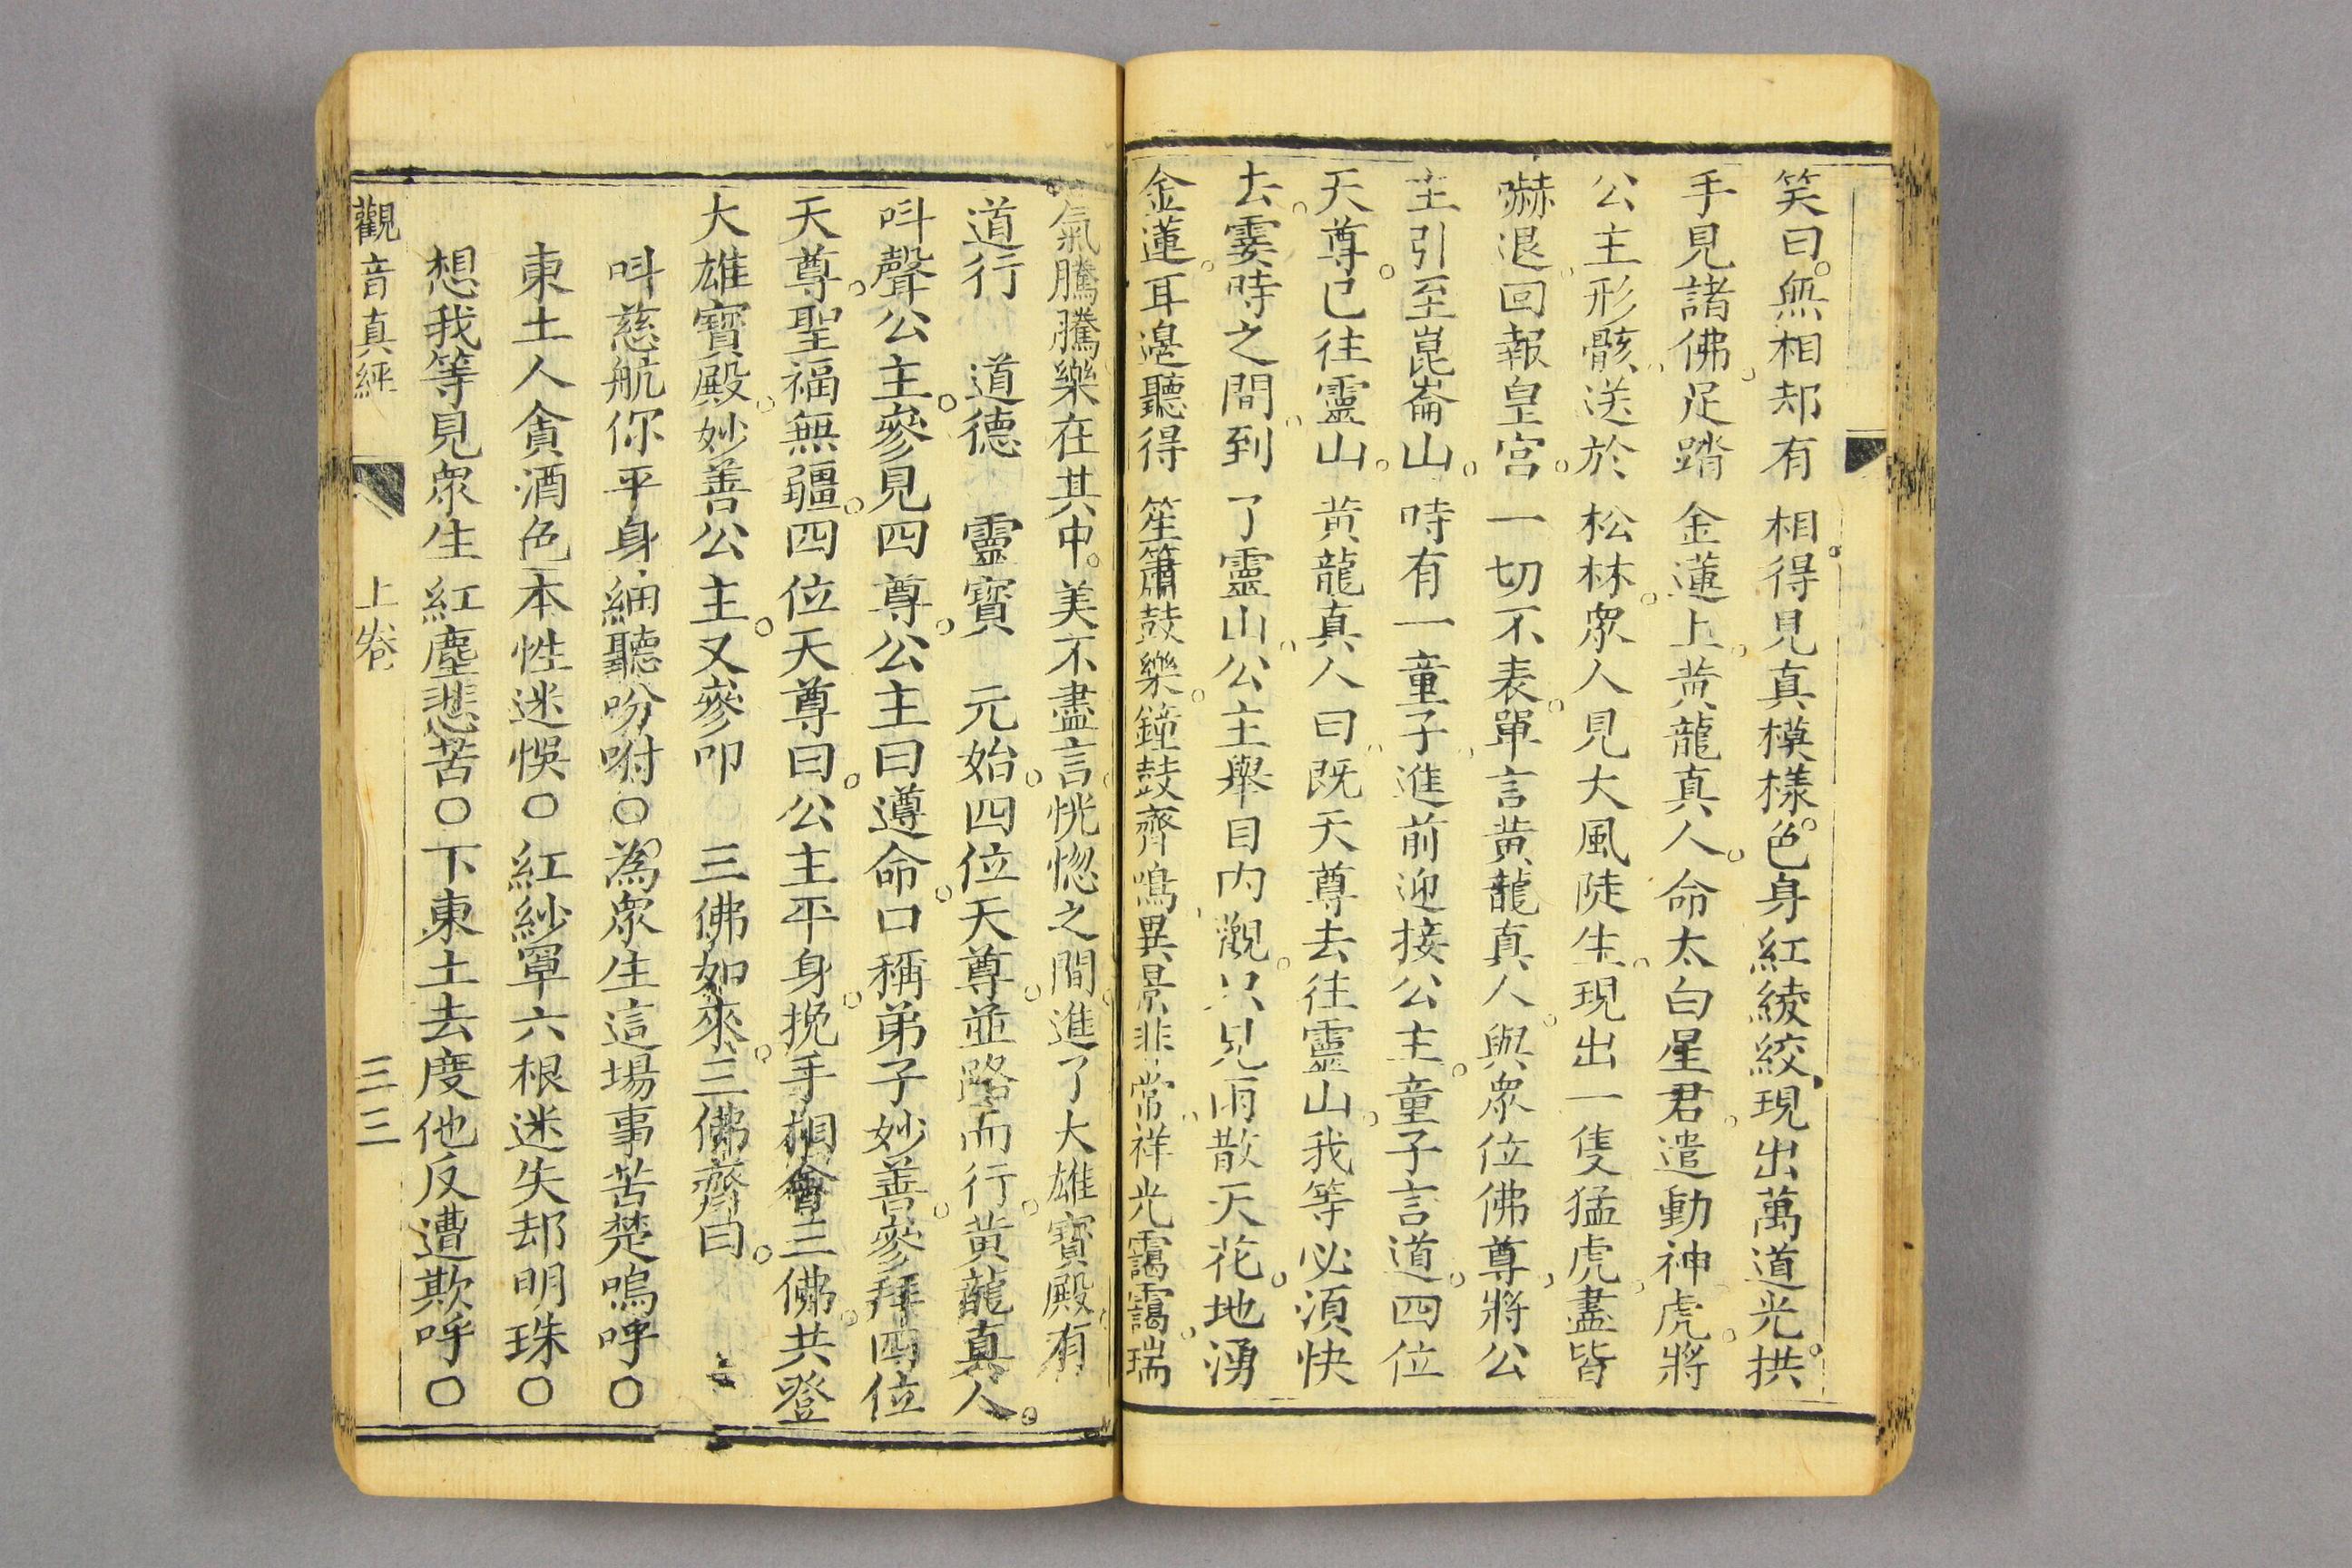 笑曰。無相却有相。得見真模樣。色身紅綾絞、現出萬道光。拱
手見諸佛。足踏金蓮上。黄龍真人。命太白星君。遣動神虎。將
公主形骸。送於松林。眾人見大風陡生。現出一隻猛虎。盡皆
嚇退。回報皇宮。一切不表。單言黄龍真人。與眾位佛尊。將公
主引至崑崙山。時有一童子。進前迎接公主。童子言道。四位
天尊。已往靈山。黄龍真人曰。既天尊去往靈山。我等必須快
去。霎時之間。到了靈山。公主舉目内觀。只見雨散天花。地湧
金蓮。耳邊聽得笙簫鼓樂。鐘鼓齊鳴。異景非常。祥光靄靄。瑞
氣騰騰。樂在其中。美不盡言。恍惚之間。進了大雄寶殿。有
道行 道德 靈寶 元始。四位天尊。並路而行。黄龍真人。
呌聲公主。參見四尊。公主曰遵命。口稱弟子妙善。參拜四位
天尊。聖福無疆。四位天尊曰。公主平身。挽手相會三佛。共登
大雄寶殿。妙善公主。又參叩 三佛如來。三佛齊曰。
呌慈航你平身細聽吩咐〇為眾生這場事苦楚嗚呼〇
東土人貪酒色本性迷悞〇紅紗罩六根迷失却明珠〇
想我等見眾生紅塵悲苦〇下東土去度他反遭欺呼〇
觀音真經 上卷 三三